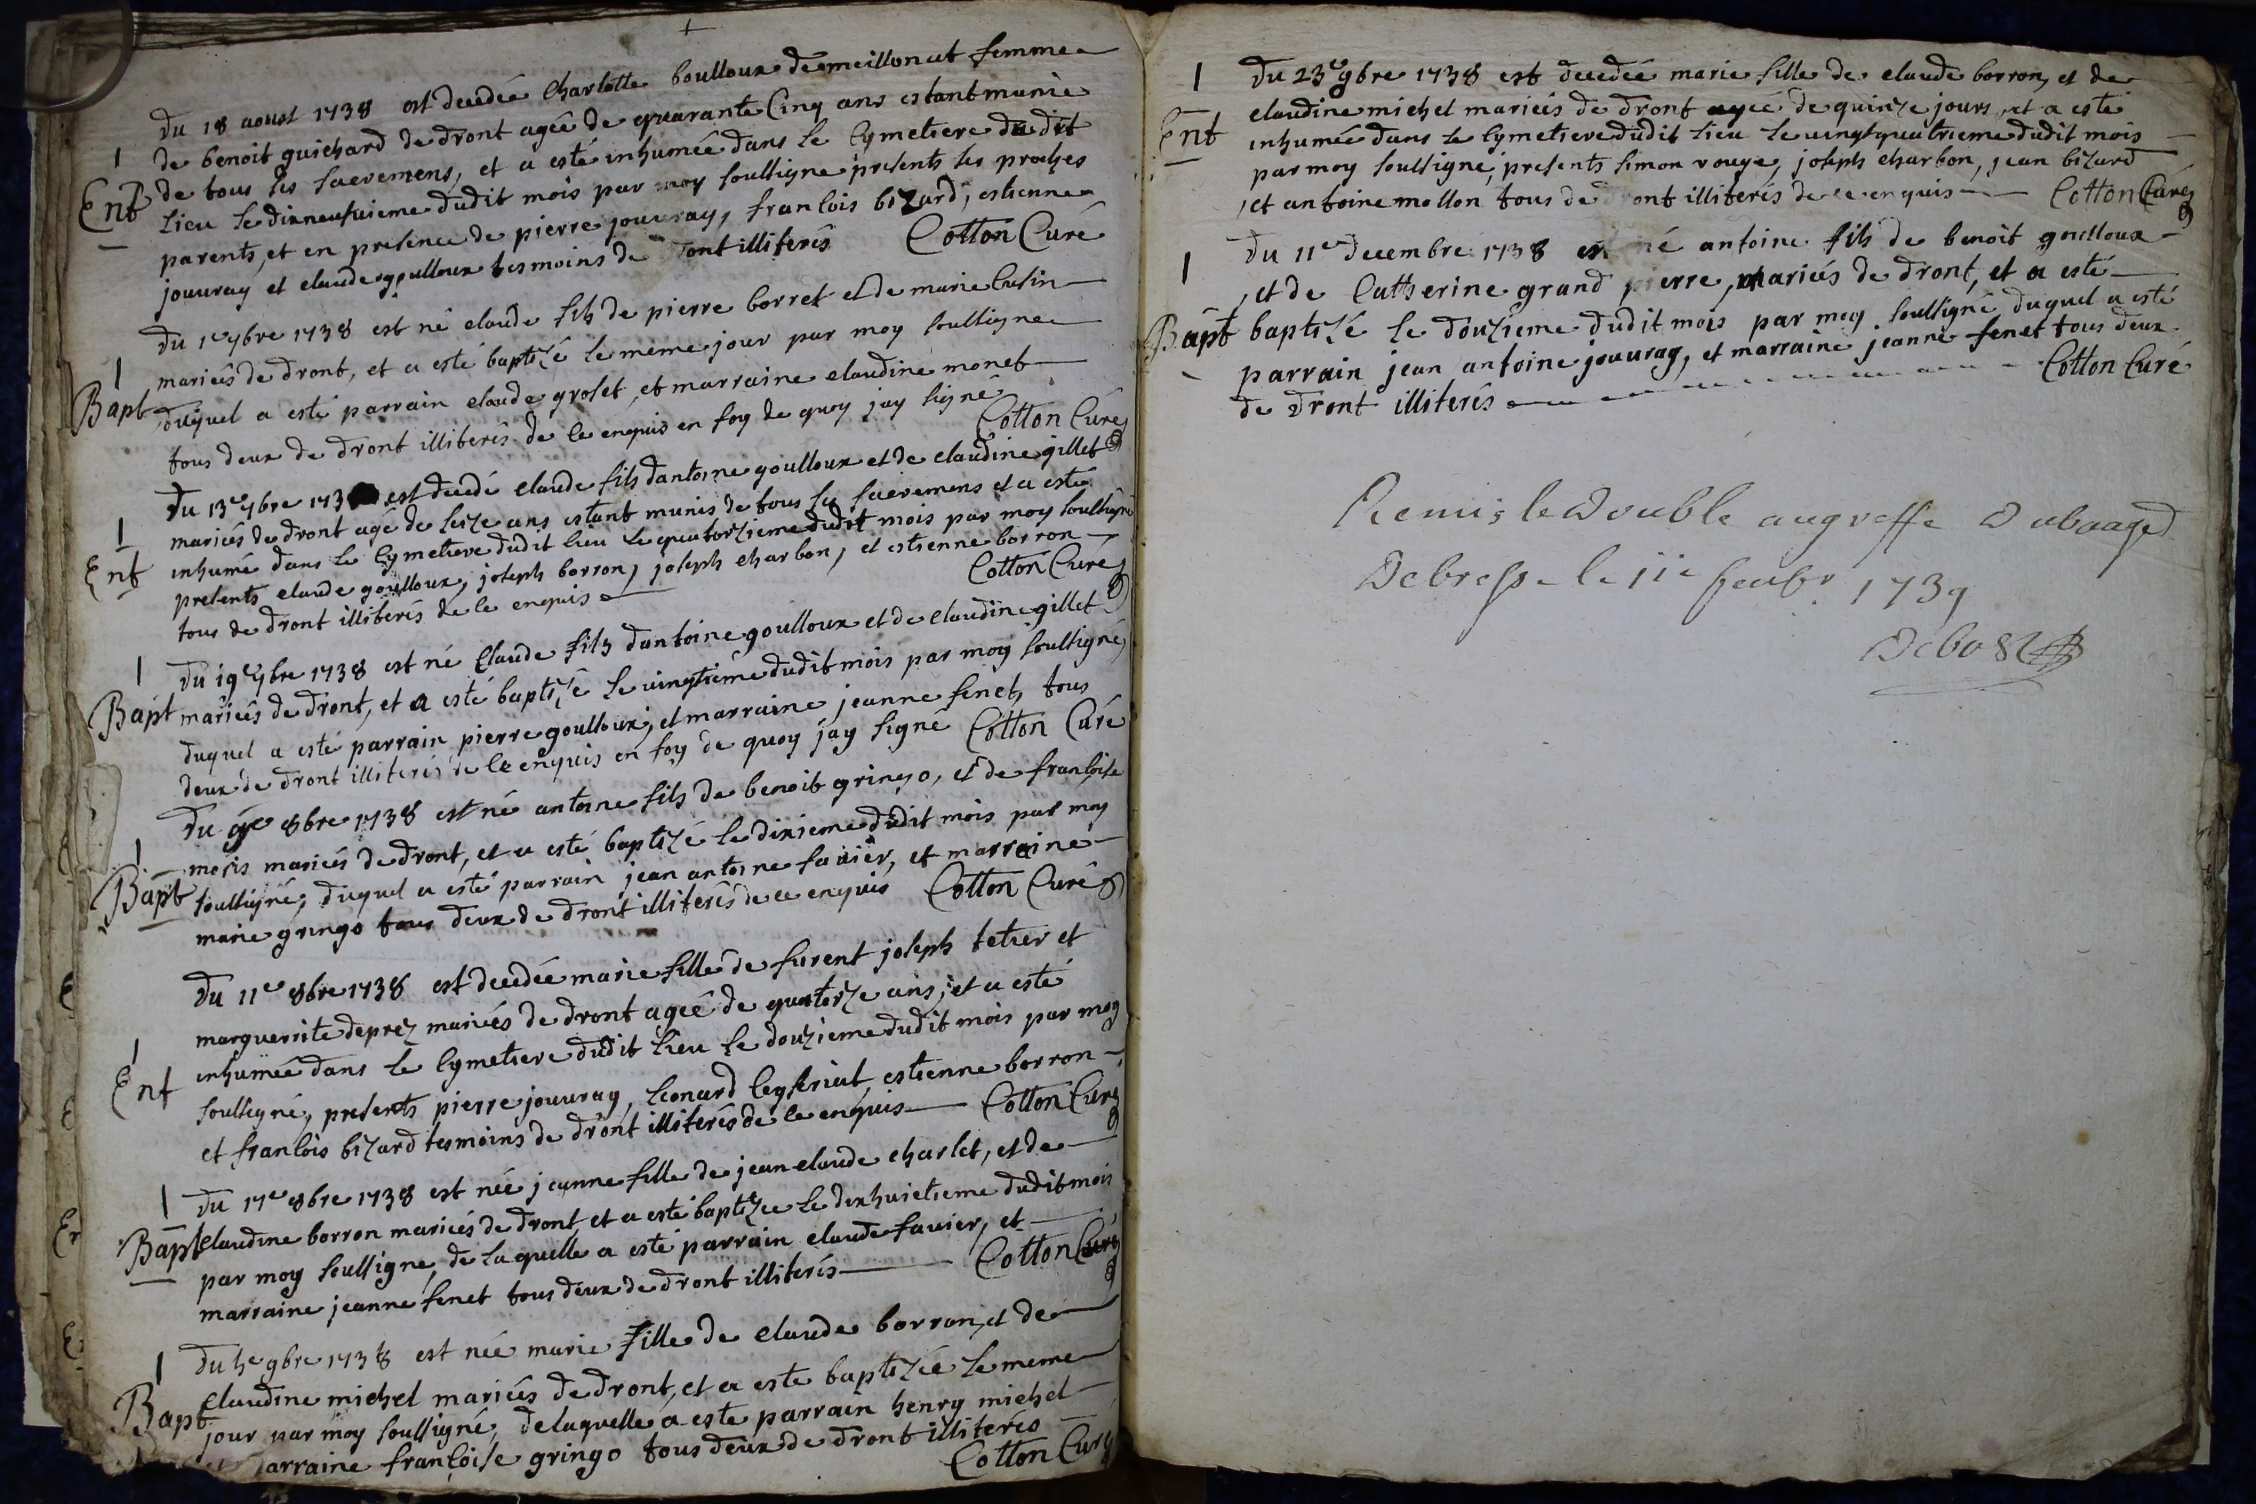 du 18 aoust 1738 est decedée Charlotte boulloux de meillonat femme
1 de benoit guichard de dront agée de quarante Cinq ans estant munie
Ent de tous les sacremens, et a esté inhumée dans le Cymetiere du dit
lieu le dixneufvieme dudit mois par moy soussigne presents les proches
parents, et en presence de pierre jouvray, francois bizard, estienne
jouvray et claude goulloux tesmoins de dront illiterés Cotton Curé
du 1er 7bre 1738 est né claude fils de pierre borret et de marie Cusin
1 mariés de dront, et a esté baptizé le meme jour par moy soussigne
Bapt duquel a esté parrain claude groset, et marraine claudine monet
tous deux de dront illiterés de ce enquis en foy de quoy jay signé Cotton Curé
du 13e 7bre 173 est decedé claude fils dantoine goulloux et de claudine gillet
1 mariés de dront agé de seize ans estant munis de tous les sacremens et a esté
Ent inhumé dans le Cymetiere dudit lieu le quatorzieme dudit mois par moy soussigné
presents claude goulloux, joseph borron, joseph charbon, et estienne borron
tous de dront illiterés de ce enquis Cotton Curé
1 du 19e 7bre 1738 est né Claude fils dantoine goulloux et de claudine gillet
Bapt mariés de dront, et a esté baptizé le vingtieme dudit mois par moy soussigné
duquel a esté parrain pierre goulloux, et marraine jeanne fenet, tous
deux de dront illiterés de ce enquis en foy de quoy jay signé Cotton Curé
du 9e 8bre 1738 est né antoine fils de benoit gringo, et de francoise
1 moris mariés de dront, et a esté baptizé le dixieme dudit mois par moy
Bapt soussigné, duquel a esté parrain jean antoine favier, et marraine
marie gringo tous deux de dront illiterés de ce enquis Cotton Curé
du 11e 8bre 1738 est decedée marie fille de furent joseph tetier et
marguerite deprez mariés de dront agée de quatorze ans, et a esté
1 inhumée dans le Cymetiere dudit lieu le douzieme dudit mois par moy
Ent soussigné, presents pierre jouvray, leonard leyseriat, estienne borron
et francois bizard tesmoins de dront illiterés de ce enquis Cotton Curé
1 du 17e 8bre 1738 est née jeanne fille de jean claude charlet, et de
Bapt claudine borron mariés de dront, et a esté baptizée le dixhuietieme dudit mois
par moy soussigné, de laquelle a esté parrain claude favier, et
marraine jeanne fenet tous deux de dront illiterés Cotton Curé
1 du he 9bre 1738 est née marie fille de claude borron, et de
claudine michel mariés de dront, et a este baptizée le meme
Bapt jour par moy soussigné, de laquelle a este parrain henry michel
arraine françoise gringo tous deux de dront illiterés
Cotton Curé
1 du 23e 9bre 1738 est decedée marie fille de claude borron, et de
claudine michel mariés de dront agée de quinze jours, et a esté
Ent inhumée dans le Cymetiere dudit lieu le vingtquatrieme dudit mois
par moy soussigné, presents simon rouge, joseph charbon, jean bizard
et antoine mollon tous de dront illiterés de ce enquis Cotton Curé
1 du 11e decembre 1738 est né antoine fils de benoit goulloux
et de Catherine grand pierre, mariés de dront, et a esté
Bapt baptizé le douzieme dudit mois par moy soussigné, duquel a esté
parrain jean antoine jouvray, et marraine jeanne fenet tous deux
de dront illiterés Cotton Curé
Remis le Double au greffe
De bresse le 11e 1739